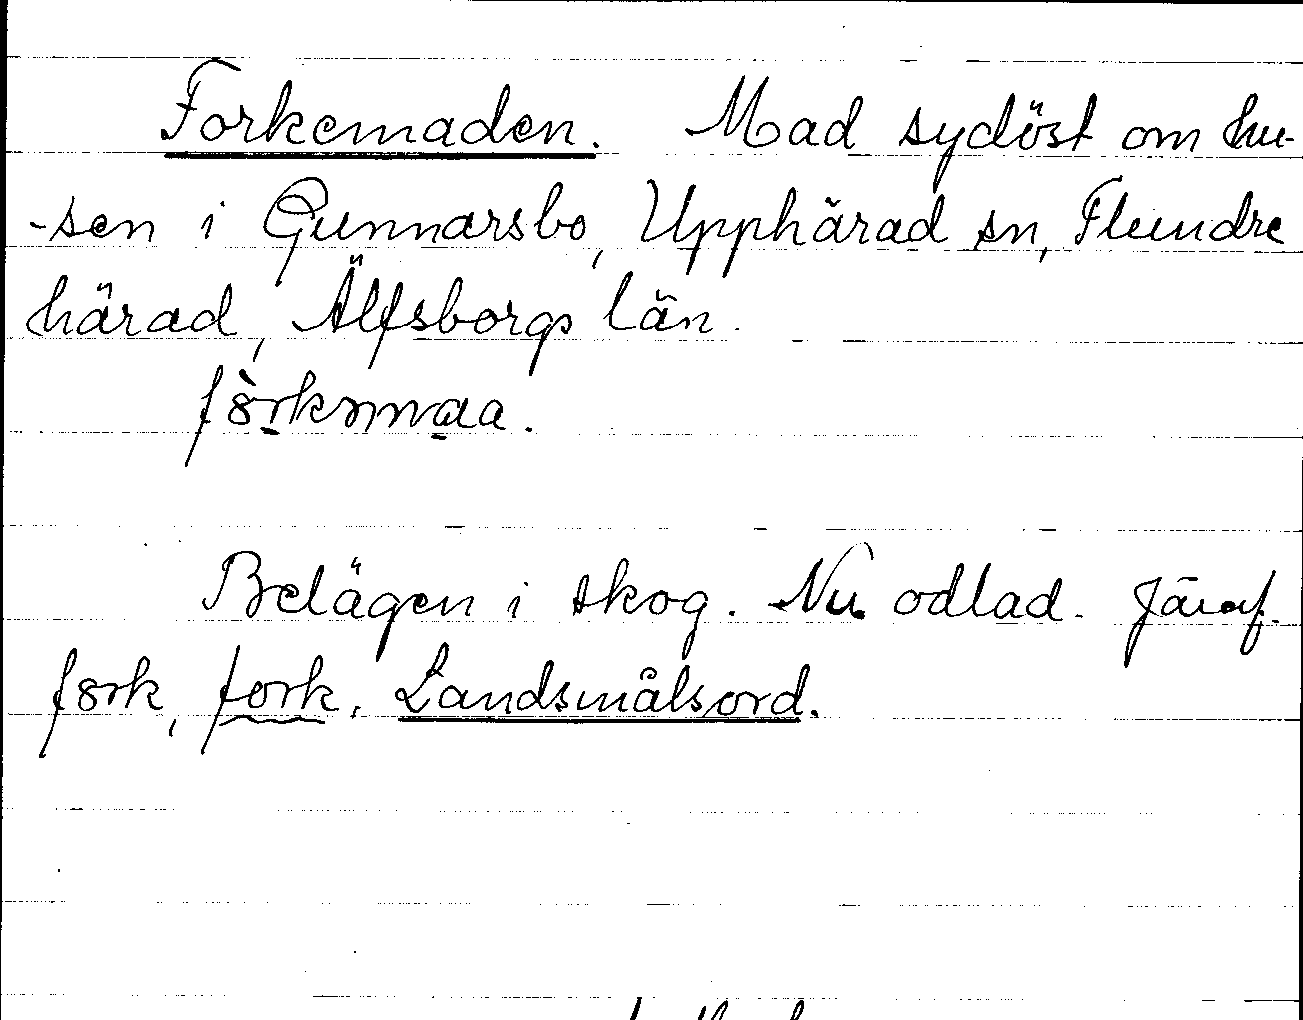 Forkemaden. Mad sydöst om hu-
-sen i Gunnarsbo, Upphärad sn, Flundre
härad, Älfsborgs län.
fòrkəmaa.
Belägen i skog. Nu odlad. Jämf.
fork, fork. Landsmålsord.